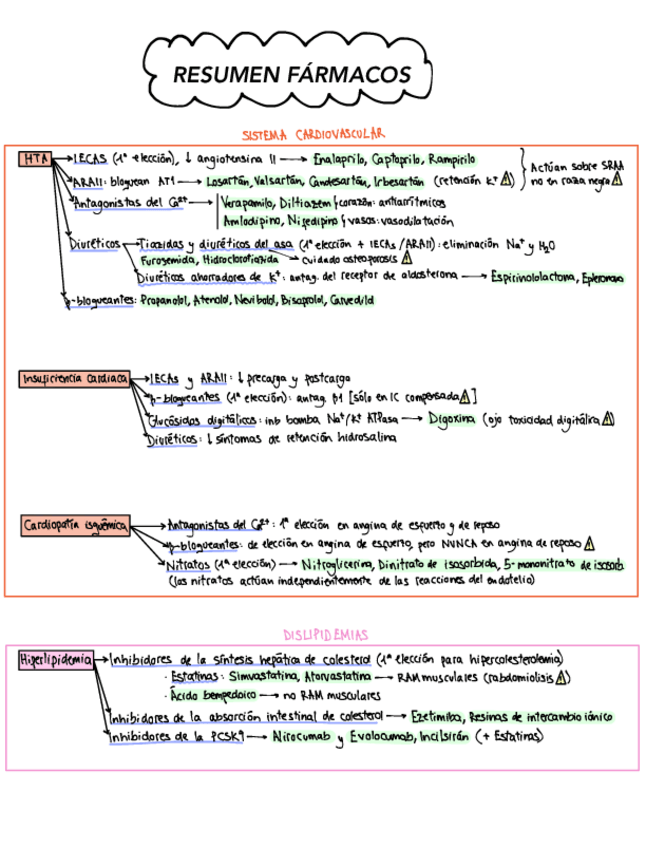 RESUMEN FÁRMACOS
SISTEMA CARDIOVASCULAR
HTA
IECAS (1ª elección), ↓ angiotensina II → Enalaprilo, Captoprilo, Rampirilo
ARAII: bloquean AT1 → Losartán, Valsartán, Candesartán, Irbesartán (retención K⁺ ⚠)
Actúan sobre SRAA
no en raza negra ⚠
Antagonistas del Ca²⁺ → Verapamilo, Diltiazem } corazón: antiarrítmicos
Amlodipino, Nifedipino } vasos: vasodilatación
Diuréticos → Tiazidas y diuréticos del asa (1ª elección + IECAs / ARAII): eliminación Na⁺ y H₂O
Furosemida, Hidroclorotiazida → cuidado osteoporosis ⚠
Diuréticos ahorradores de K⁺: antag. del receptor de aldosterona → Espirinololactona, Eplerenona
β-bloqueantes: Propanolol, Atenolol, Nevibolol, Bisoprolol, Carvedilol
Insuficiencia cardiaca
IECAs y ARAII: ↓ precarga y postcarga
β-bloqueantes (1ª elección): antag. β1 [sólo en IC compensada ⚠]
Glucósidos digitálicos: inb bomba Na⁺/K⁺ ATPasa → Digoxina (ojo toxicidad digitálica ⚠)
Diuréticos: ↓ síntomas de retención hidrosalina
Cardiopatía isquémica
Antagonistas del Ca²⁺: 1ª elección en angina de esfuerzo y de reposo
β-bloqueantes: de elección en angina de esfuerzo, pero NUNCA en angina de reposo ⚠
Nitratos (1ª elección) → Nitroglicerina, Dinitrato de isosorbida, 5-mononitrato de isosorb
(los nitratos actúan independientemente de las reacciones del endotelio)
DISLIPIDEMIAS
Hiperlipidemia
Inhibidores de la síntesis hepática de colesterol (1ª elección para hipercolesterolemia)
· Estatinas: Simvastatina, Atorvastatina → RAM musculares (rabdomiolisis ⚠)
· Ácido bempedoico → no RAM musculares
Inhibidores de la absorción intestinal de colesterol → Ezetimiba, Resinas de intercambio iónico
Inhibidores de la PCSK9 → Alirocumab y Evolocumab, Inclisirán (+ Estatinas)